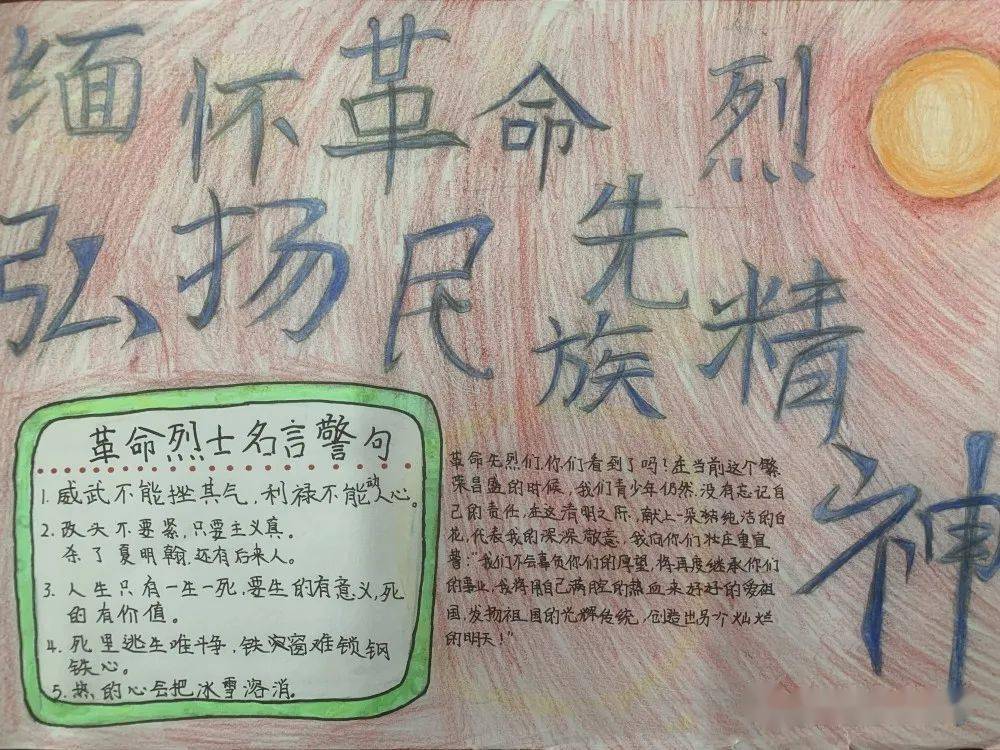 缅怀革命烈
先
弘扬民族精神
革命烈士名言警句
1. 威武不能挫其气,利禄不能动人心。
2. 改头不要紧,只要主义真。
杀了夏明翰,还有后来人。
3. 人生只有一生一死,要生的有意义,死
的有价值。
4. 死里逃生唯斗争,铁窗难锁钢
铁心。
5. 热的心会把冰雪溶消。
革命先烈们,你们看到了吗!在当前这个繁
荣昌盛的时候,我们青少年仍然没有忘记自
己的责任,在这清明之际,献上一朵纯洁的白
花,代表我的深深敬意,我向你们壮庄重宣
誓:“我们不会辜负你们的厚望,将再度继承你们
的事业,我将用自己满腔的热血来好好的爱祖
国,发扬祖国的光辉传统,创造出另个灿烂
的明天!”